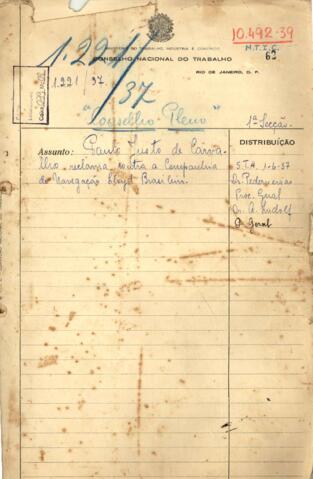 10.492-39
MINISTERIO DO TRABALHO, INDUSTRIA E COMMERCIO
M.T.I.C.
CONSELHO NACIONAL DO TRABALHO
RIO DE JANEIRO, D. F.
1.221/37
1.221/37
"Conselho Pleno"
1ª Secção.
Assunto: Paulo Justo de Carva-
lho reclama contra a Companhia
de Navegação Lloyd Brasileiro.
DISTRIBUIÇÃO
1-6-37
Dr.
Proc. Geral
Dr. A. Rudolf
P. Geral